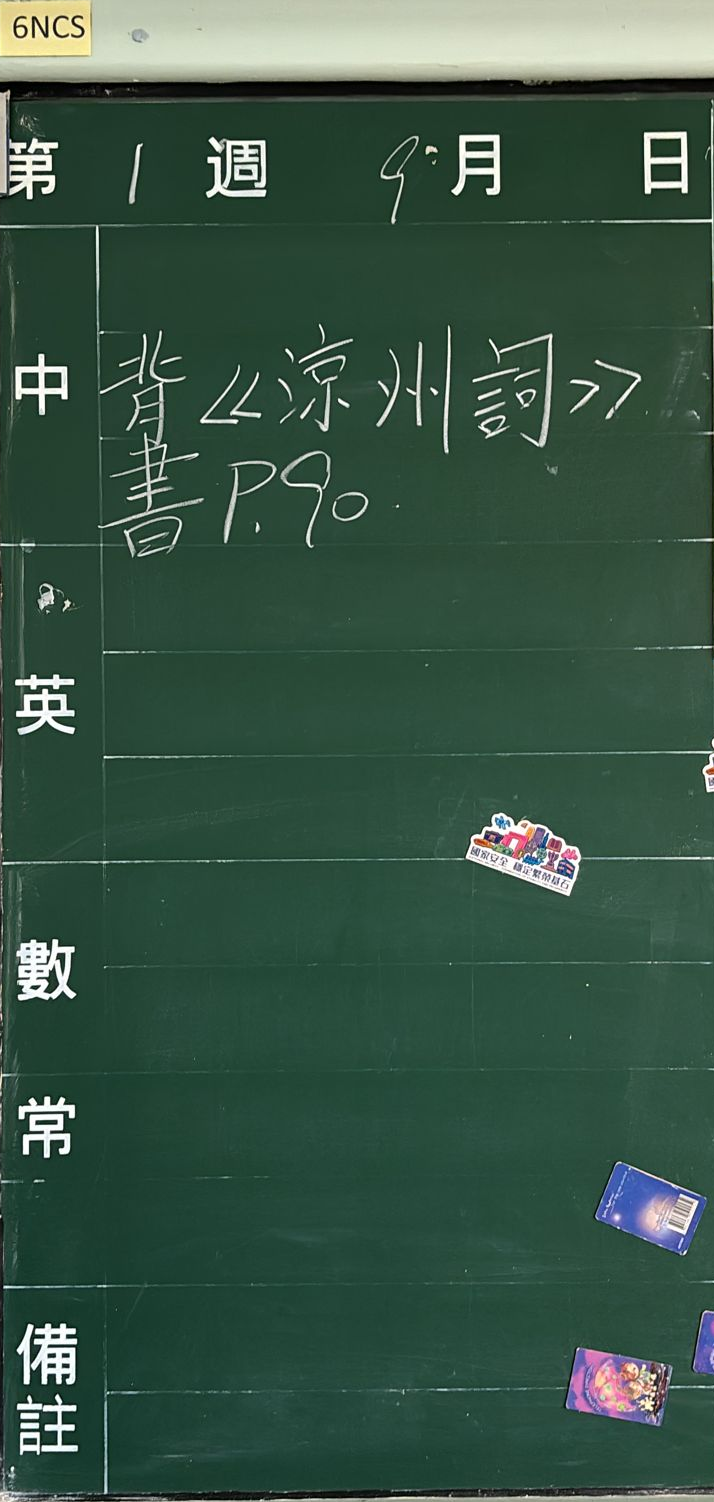 6NCS
第 1 週 9 月 日
中
背《涼州詞》
書 P.90
英
國家安全 穩定繁榮基石
數
常
備註